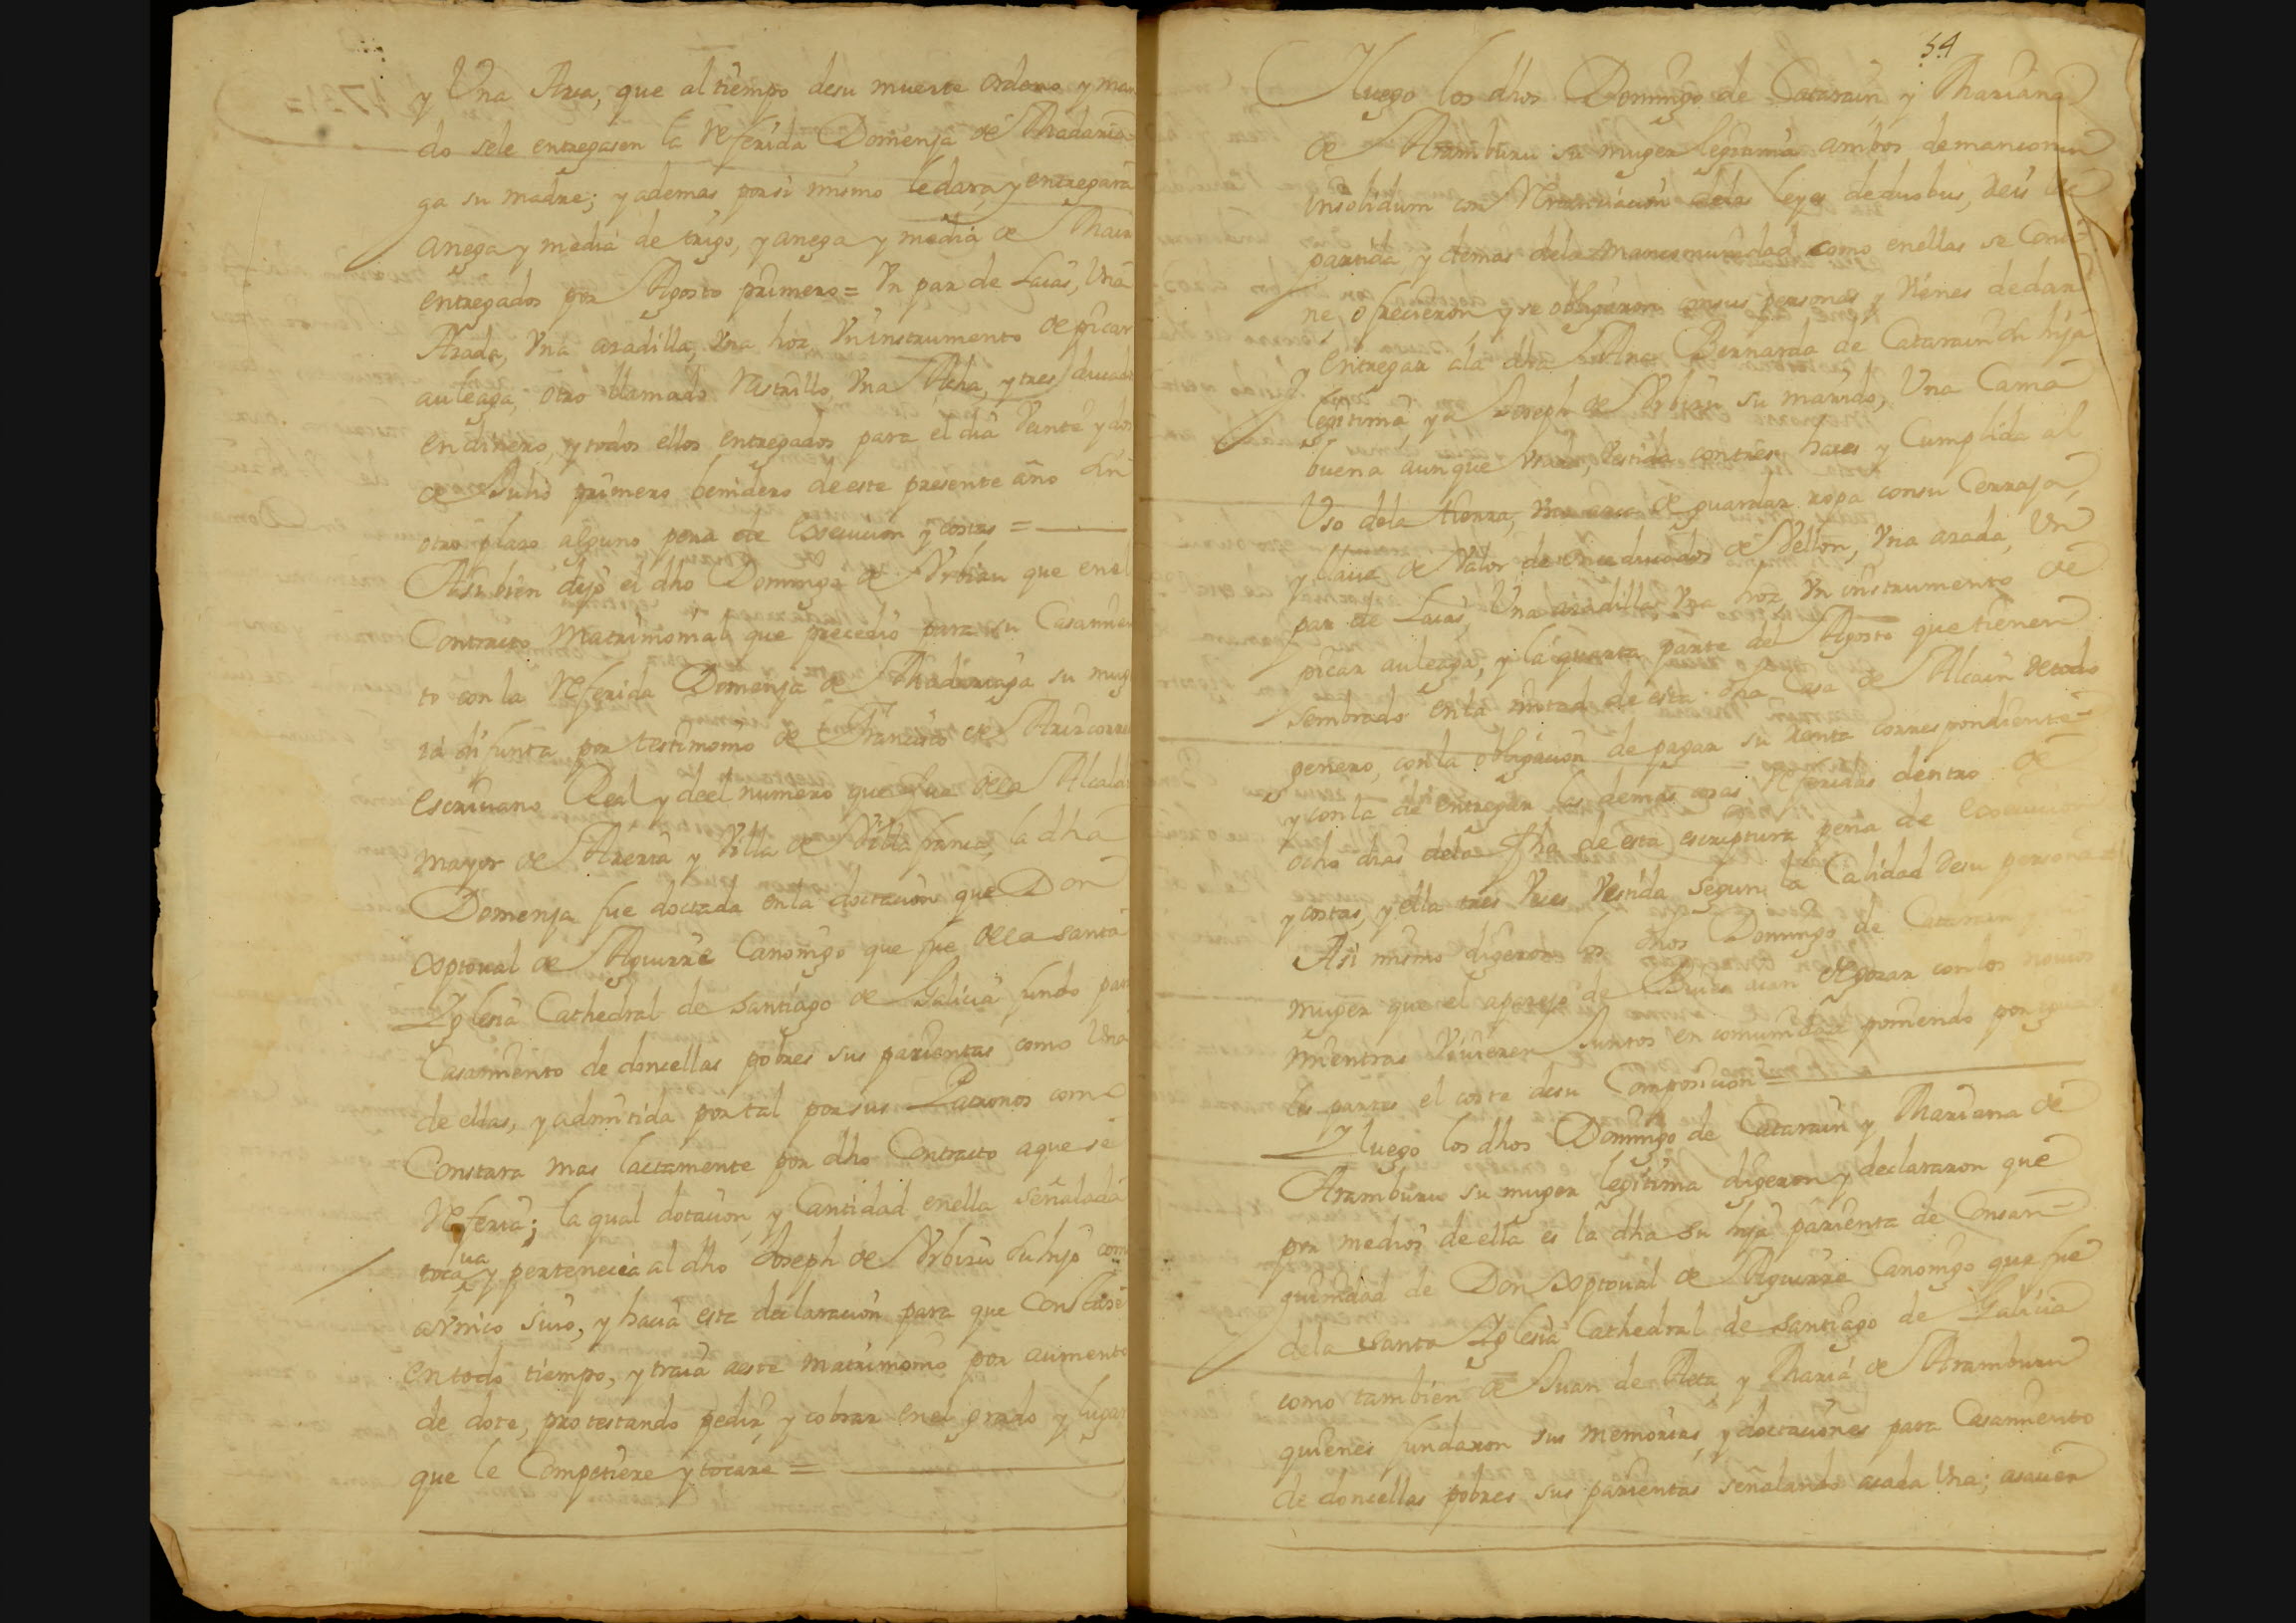 y Una Arca, que al tiempo desu muerte ordeno y man
do sele entregasen la referida Domenja de Madaria
ga su madre; y ademas porsi mismo ledara, y entregara
anega y media de trigo, y anega y media de Maiz
entregados por Agosto primero = Un par de Laias, Una
Arada, Una aradilla, Una hoz, Un instrumento de picar
auleaga, otro llamado rastrillo, Una Acha, y tres ducados
en dinero, y todos ellos entregados para el dia Veinte y dos
de Julio primero benidero de este presente año sin
otro plazo alguno pena de execucion y costas =
Asi bien dijo el dho Domingo de Urbizu que en el
Contracto Matrimonial que precedio para su Casamien
to con la referida Domenja de Madariaga su mug
ra difunta por testimonio de Francisco de
escriuano Real y deel numero que fue de la Alcaldia
mayor de Areria y Villa de Villafranca, la dha
Domenja fue doctada en la doctacion que Don
Xptoual de Aguirre Canonigo que fue de la santa
Yglesia Cathedral de santiago de Galicia fundo para
Casamiento de doncellas pobres sus parientas, como Una
de ellas, y admitida por tal por sus Patronos como
Constara mas lactamente por dho Contracto aque se
referia; la qual dotacion, y Cantidad en ella señalada
tocaua y pertenecia al dho Joseph de Urbizu su hijo como
a Vnico suio, y hacia esta declaracion para que Constase
en todo tiempo, y traia a este matrimonio por aumento
de dote, protestando pedir, y cobrar en el grado y lugar
que le Competiere y tocare =
54
Yluego los dhos Domingo de Catarain y Mariana
de Aramburu su muger legitima ambos demancomun
Insolidum con renunciacion delas leyes deduobus, reis de
partida, y demas dela mancomunidad como enellas se Conti
ne, ofrecieron y se obligaron consus personas, y Vienes dedar
y entregar ala dha Ana Bernarda de Catarain su hija
legitima y a Joseph de Urbizu su marido, Una Cama
buena aunque Vsada, Vestida contres hazes y Cumplida al
Uso dela tierra, Una arca de guardar ropa consu Cerraja,
y llaue de Valor de once ducados de Vellon, Una arada, Un
par de Laias, Una aradilla, Una hoz, Un instrumento de
picar auleaga, y la quarta parte del Agosto que tienen
sembrado enla mitad de esta dha Casa de Alcain de todo
genero, conla obligacion de pagar su Renta correspondiente
y conla de entregar las demas cosas referidas dentro de
ocho dias dela fha de esta escriptura pena de execucion
y costas, y ella tres Veces Vestida segun la Calidad desu persona =
Asi mismo digeron los dhos Domingo de Catarain
muger que el aparejo de aian de gozar conlos nouios
mientras Viuieren Juntos en comunidad poniendo por
les partes el coste desu Composicion =
Yluego los dhos Domingo de Catarain y Mariana de
Aramburu su muger legitima digeron y declararon que
por medios de ella es la dha su hija parienta de Consan
guinidad de Don Xptoual de Aguirre Canonigo que fue
dela santa Yglesia Cathedral de santiago de Galicia
como tambien de Juan de Aeta, y Maria de Aramburu
quienes fundaron sus memorias, y doctaciones para Casamiento
de doncellas pobres sus parientas señalando acada Una; asauer